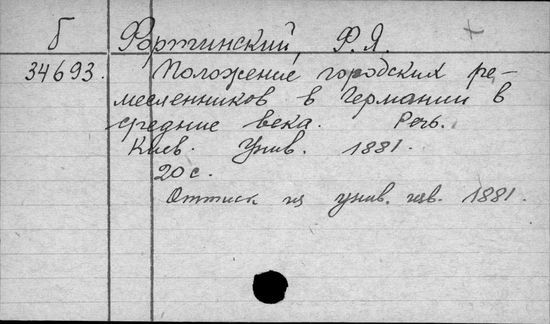 Б Фортинский, Ф. Я.
34693. Положение городских ре-
месленников в Германии в
средние века. Речь.
Киев. Унив. 1881.
20 с.
Оттиск из унив. изв. 1881.